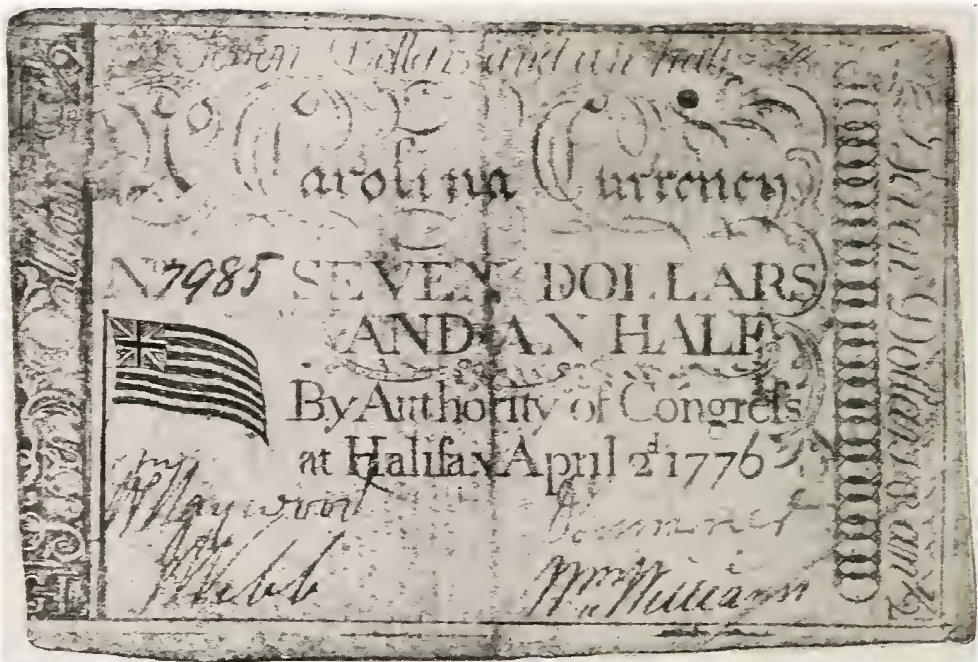 Seven Dollars and an half
Carolina Currency
No 7985 SEVEN DOLLARS
AND AN HALF
By Authority of Congreſs
at Halifax April 2d 1776
Wm Haywood
W Webb
Wm Williams
Seven Dollars & an ½
Dollars